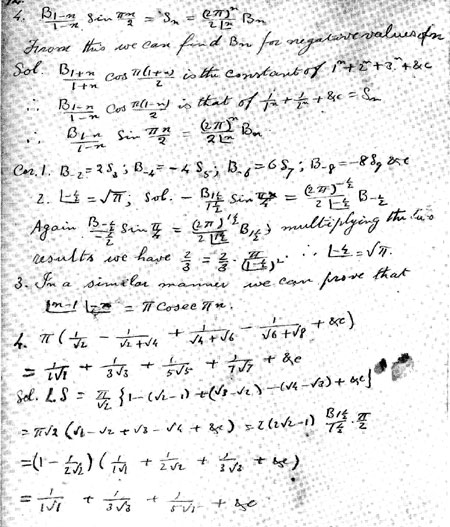 4. B_{1-n}/(1-n) Sin πn/2 = S_n = (2π)^n/(2|n) B_n
From this we can find Bn for negative values of n
Sol. B_{1+n}/(1+n) cos π(1+n)/2 is the constant of 1^n + 2^n + 3^n + &c
∴ B_{1-n}/(1-n) Cos π(1-n)/2 is that of 1/1^n + 1/2^n + &c = S_n
∴ B_{1-n}/(1-n) Sin πn/2 = (2π)^n/(2|n) B_n.
Cor. 1. B_{-2} = 2S_3; B_{-4} = -4S_5; B_{-6} = 6S_7; B_{-8} = -8S_9 &c
2. |-½ = √π; Sol. - B_{1½}/1½ Sin π/4 = (2π)^{-½}/(2|-½) B_{-½}
Again B_{-½}/-½ Sin π/4 = (2π)^{1½}/(2|1½) B_{1½}; multiplying the two
results we have 2/3 = 2/3 · π/(|-½)². ∴ |-½ = √π.
3. In a similar manner we can prove that
|n-1 |-n = π Cosec πn.
4. π(1/√2 - 1/(√2+√4) + 1/(√4+√6) - 1/(√6+√8) + &c)
= 1/(1√1) + 1/(3√3) + 1/(5√5) + 1/(7√7) + &c
Sol. L.S = π/√2 {1-(√2-1)+(√3-√2)-(√4-√3)+&c}
= π√2 (√1-√2+√3-√4+&c) = 2(2√2-1) B_{1½}/1½ · π/2
= (1 - 1/(2√2)) (1/(1√1) + 1/(2√2) + 1/(3√3) + &c)
= 1/(1√1) + 1/(3√3) + 1/(5√5) + &c